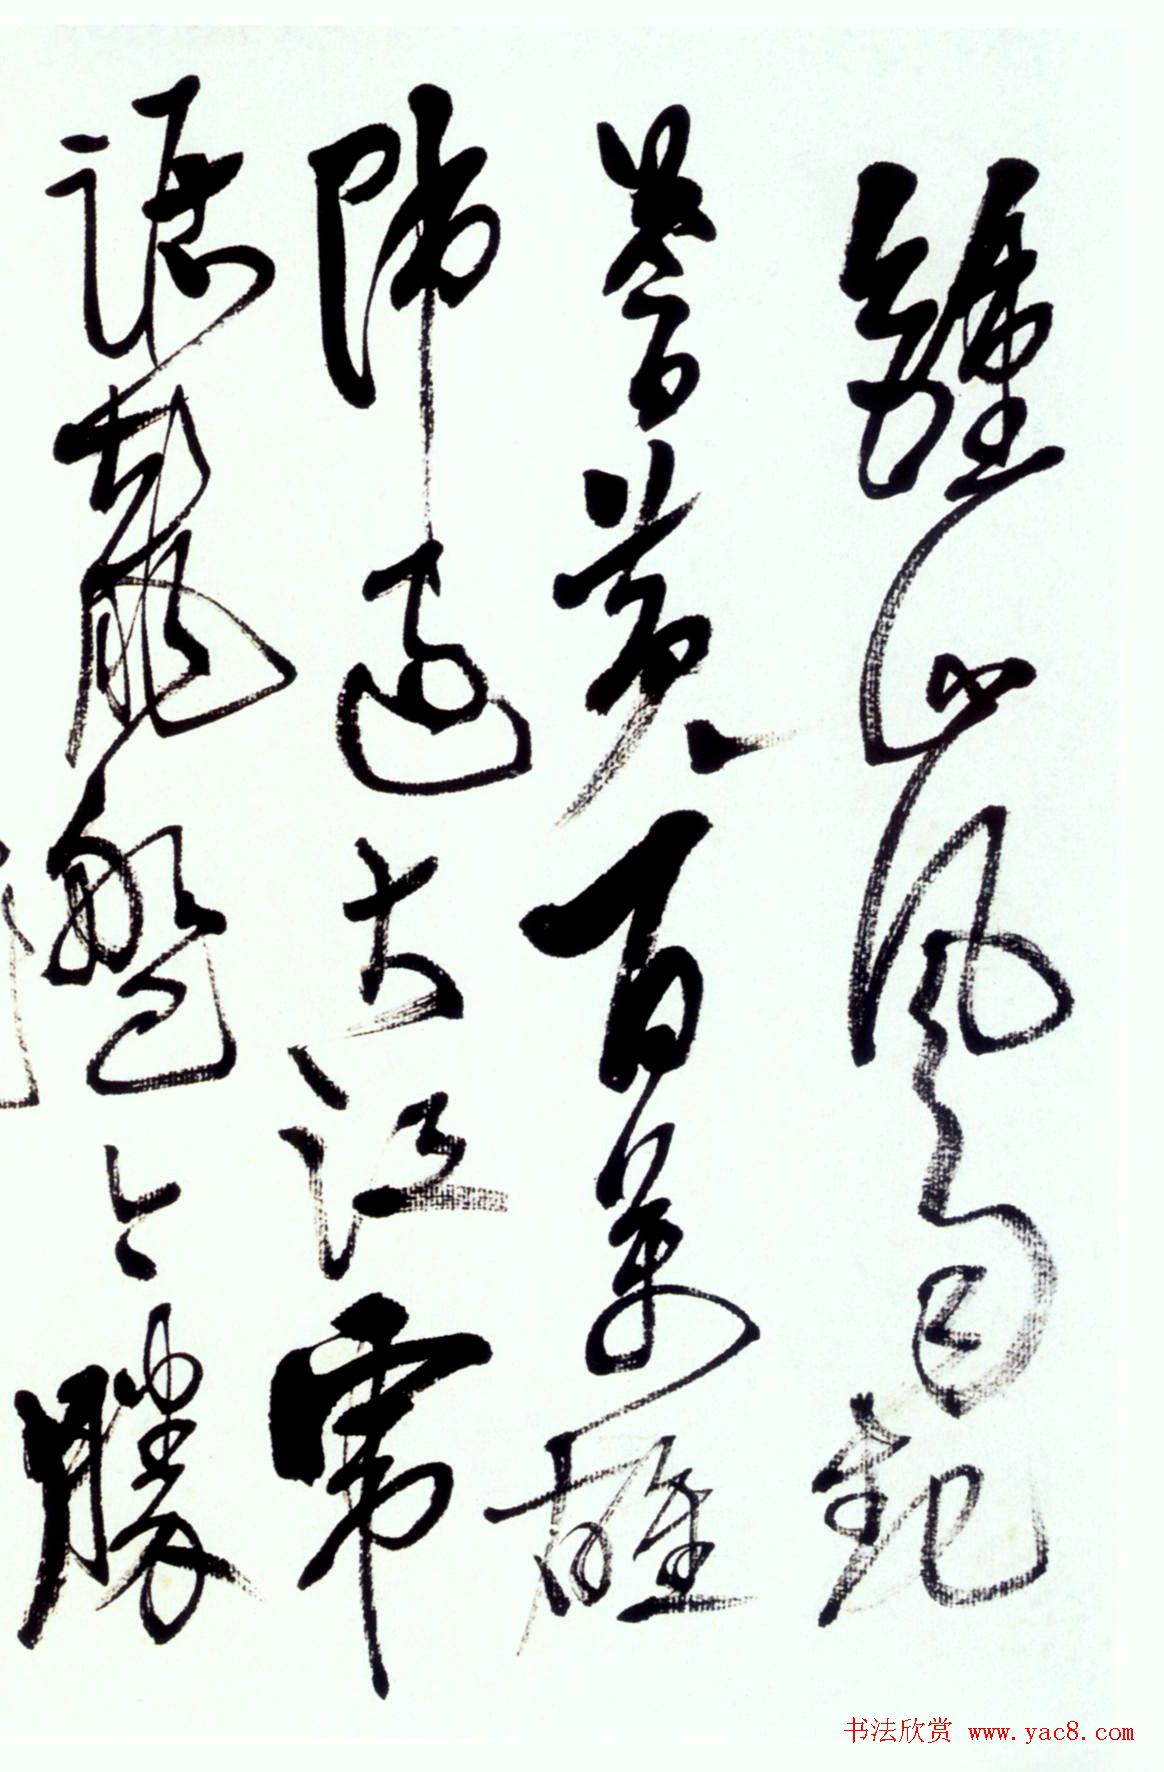 鍾山風雨起
蒼黃百萬雄
師過大江虎
踞龍盤今勝
书法欣赏 www.yac8.com